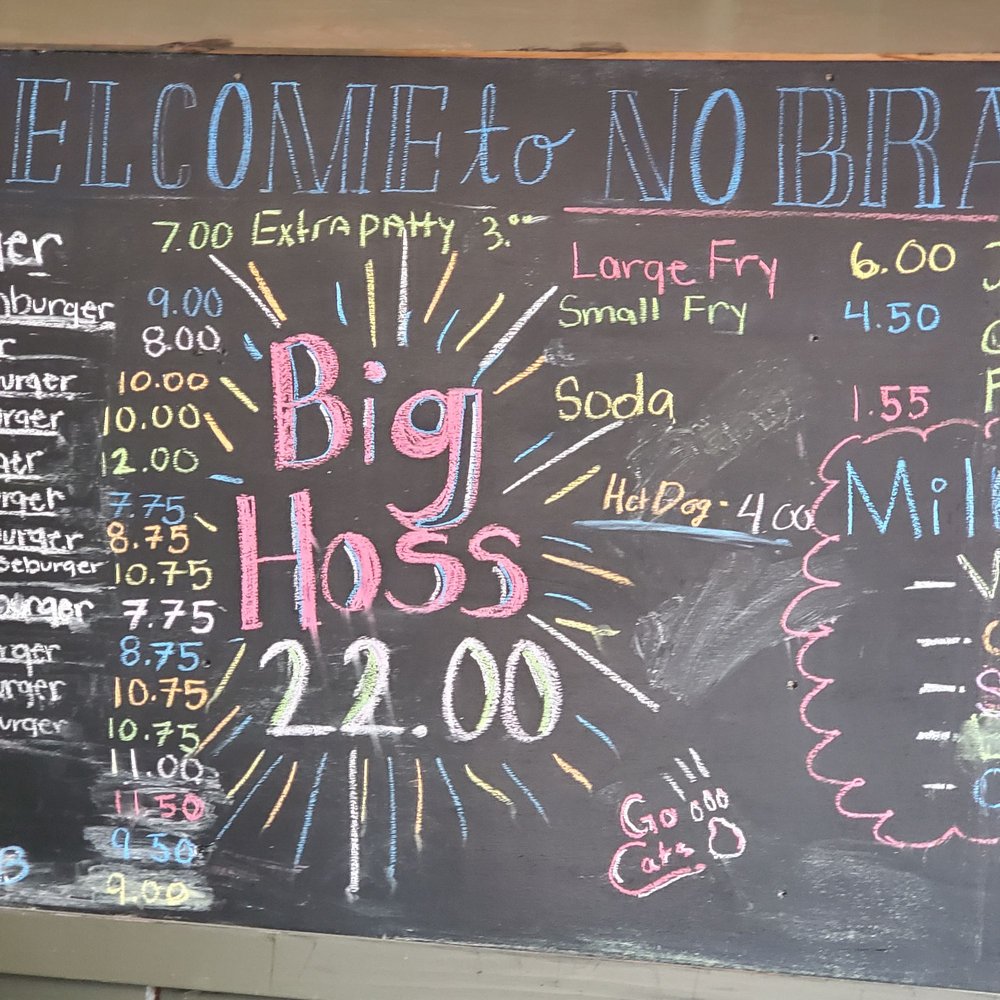 ELCOME to NO BRA
ger 7.00 Extra patty 3.00
nburger 9.00
r 8.00
urger 10.00
rger 10.00
ger 12.00
rger 7.75
burger 8.75
seburger 10.75
burger 7.75
rger 8.75
urger 10.75
urger 10.75
11.00
11.50
9.50
B 9.00
Big
Hoss
22.00
Large Fry 6.00
Small Fry 4.50
Soda 1.55
Hot Dog - 4.00
Go
Cats
Mil